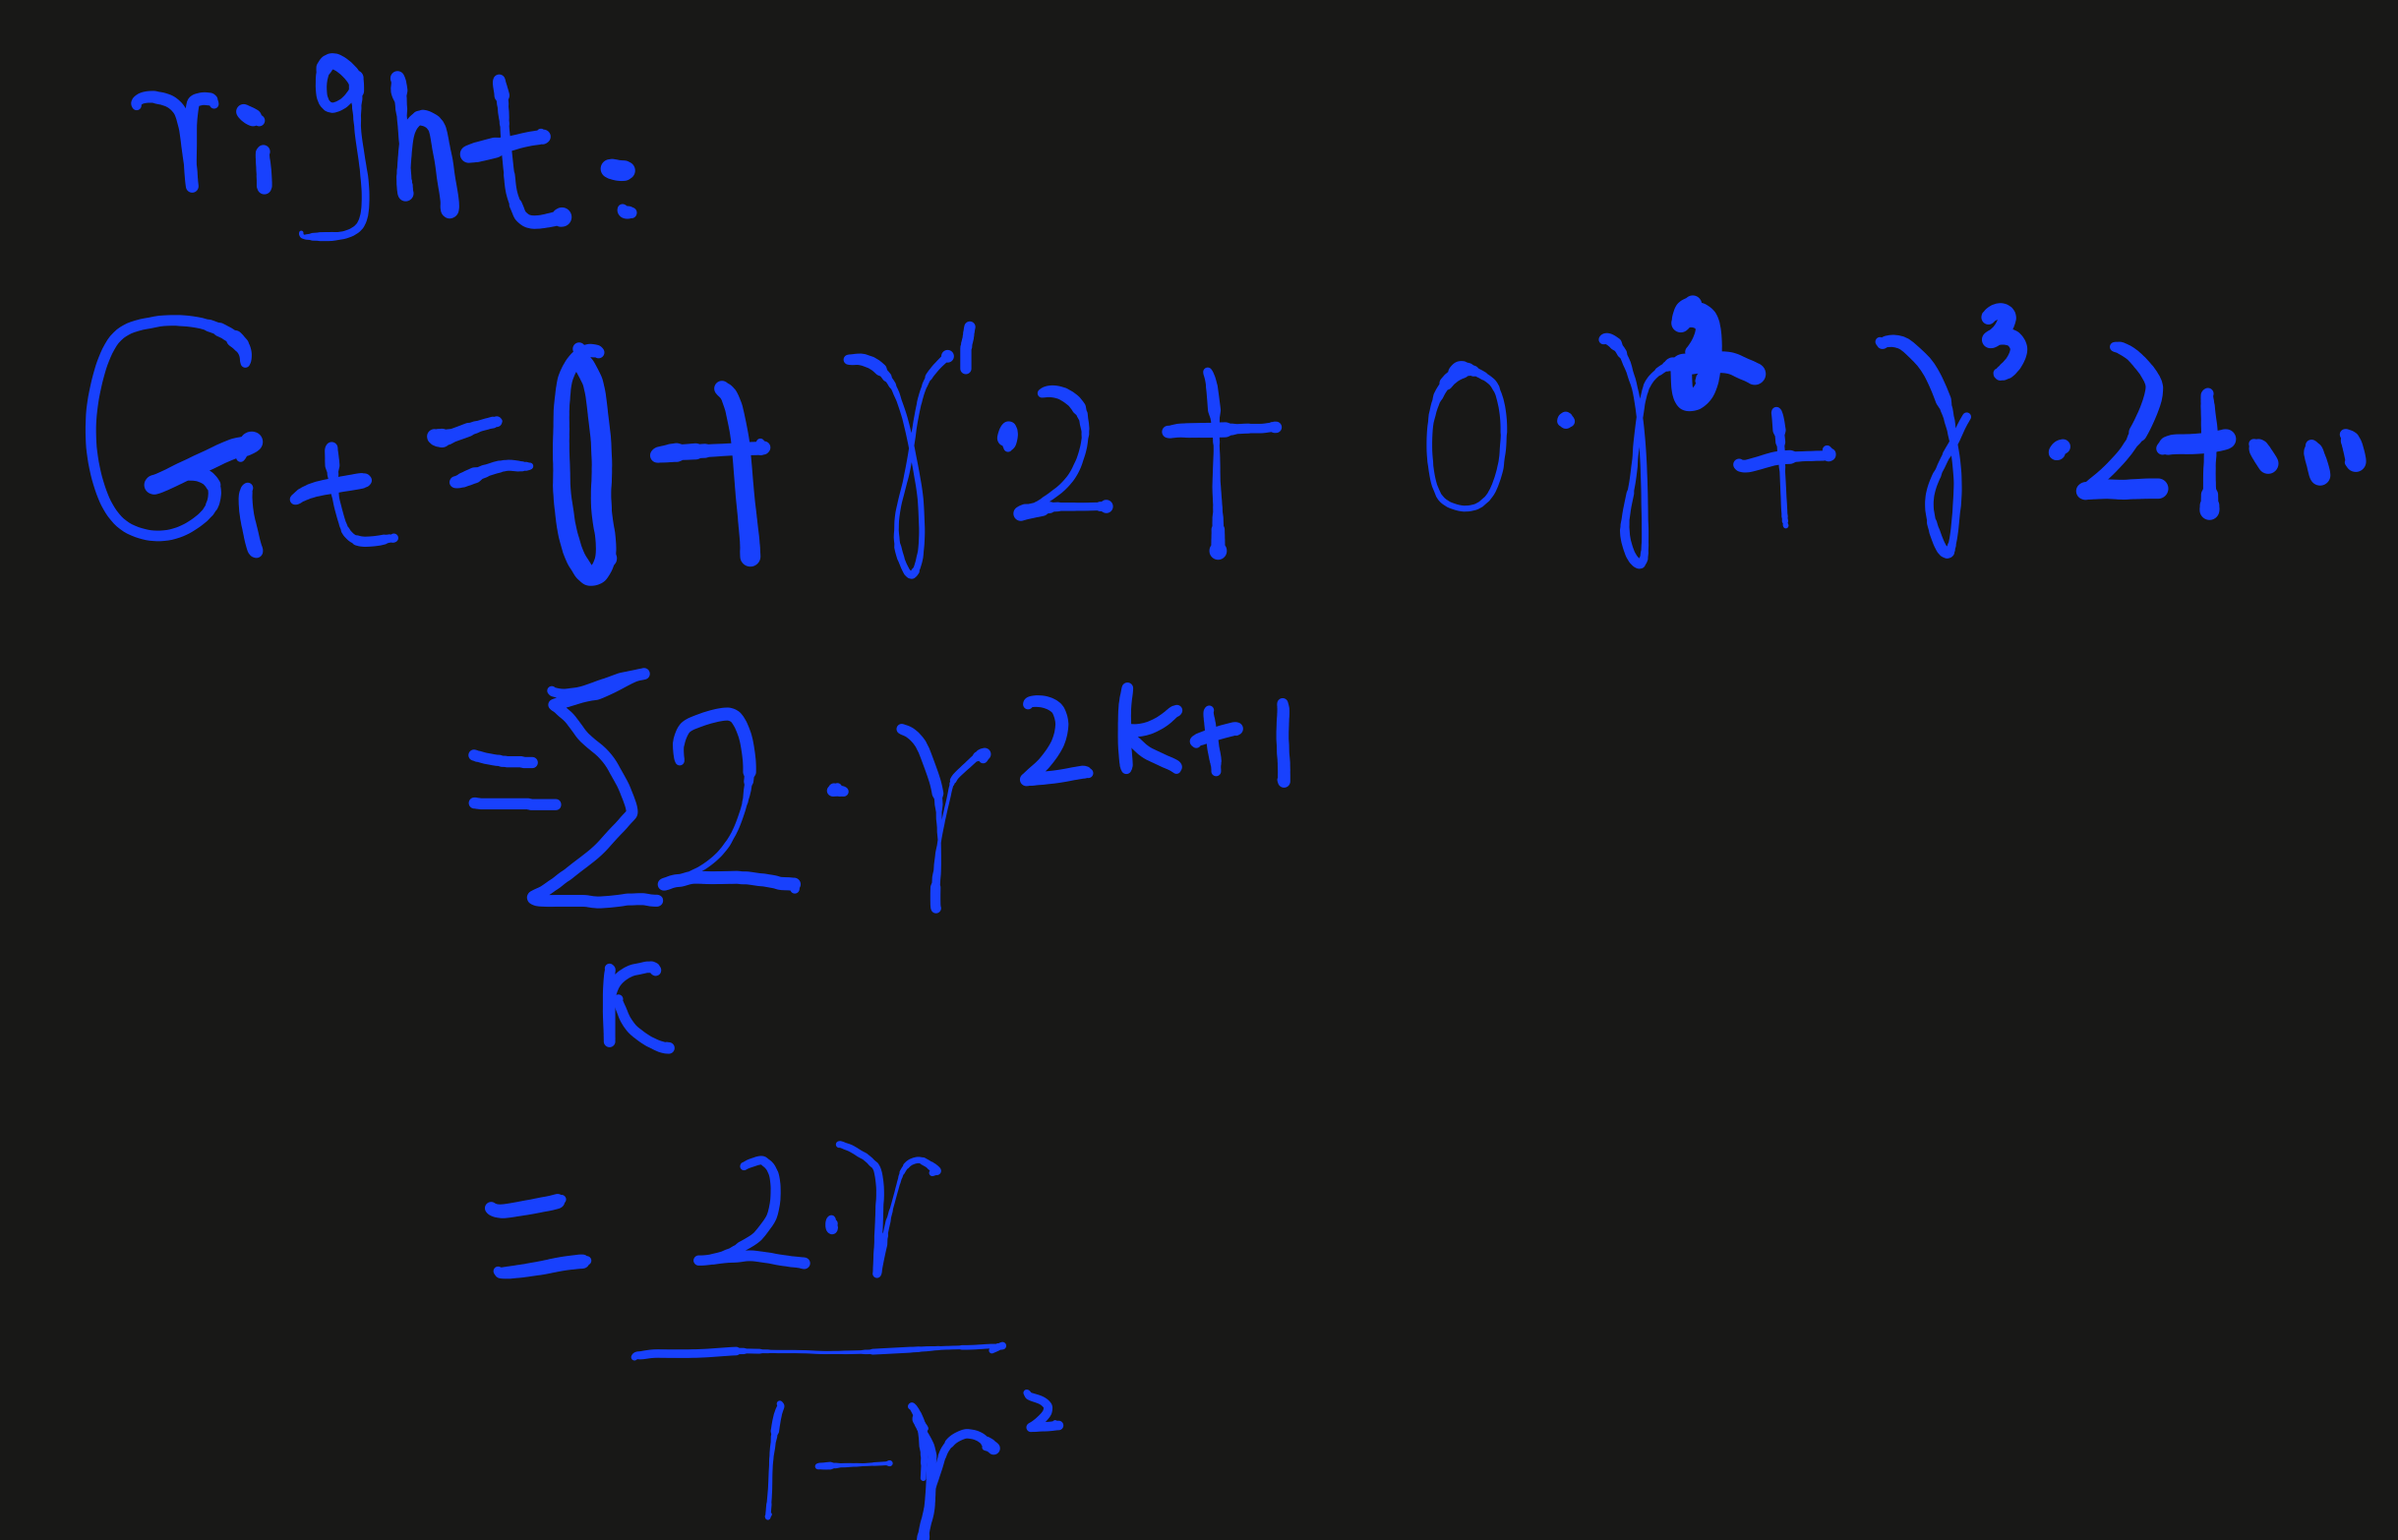 right:
G_t = 0 + γ^1 · 2 + 0 · γ^2 + γ^3 · 2 + ...
= Σ_k 2 · γ^{2k+1}
= \frac{2 · γ}{1 - γ^2}